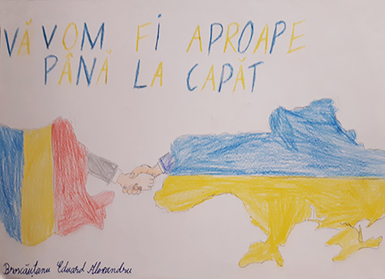 VĂ VOM FI APROAPE
PÂNĂ LA CAPĂT
Broscăuțanu Eduard Alexandru